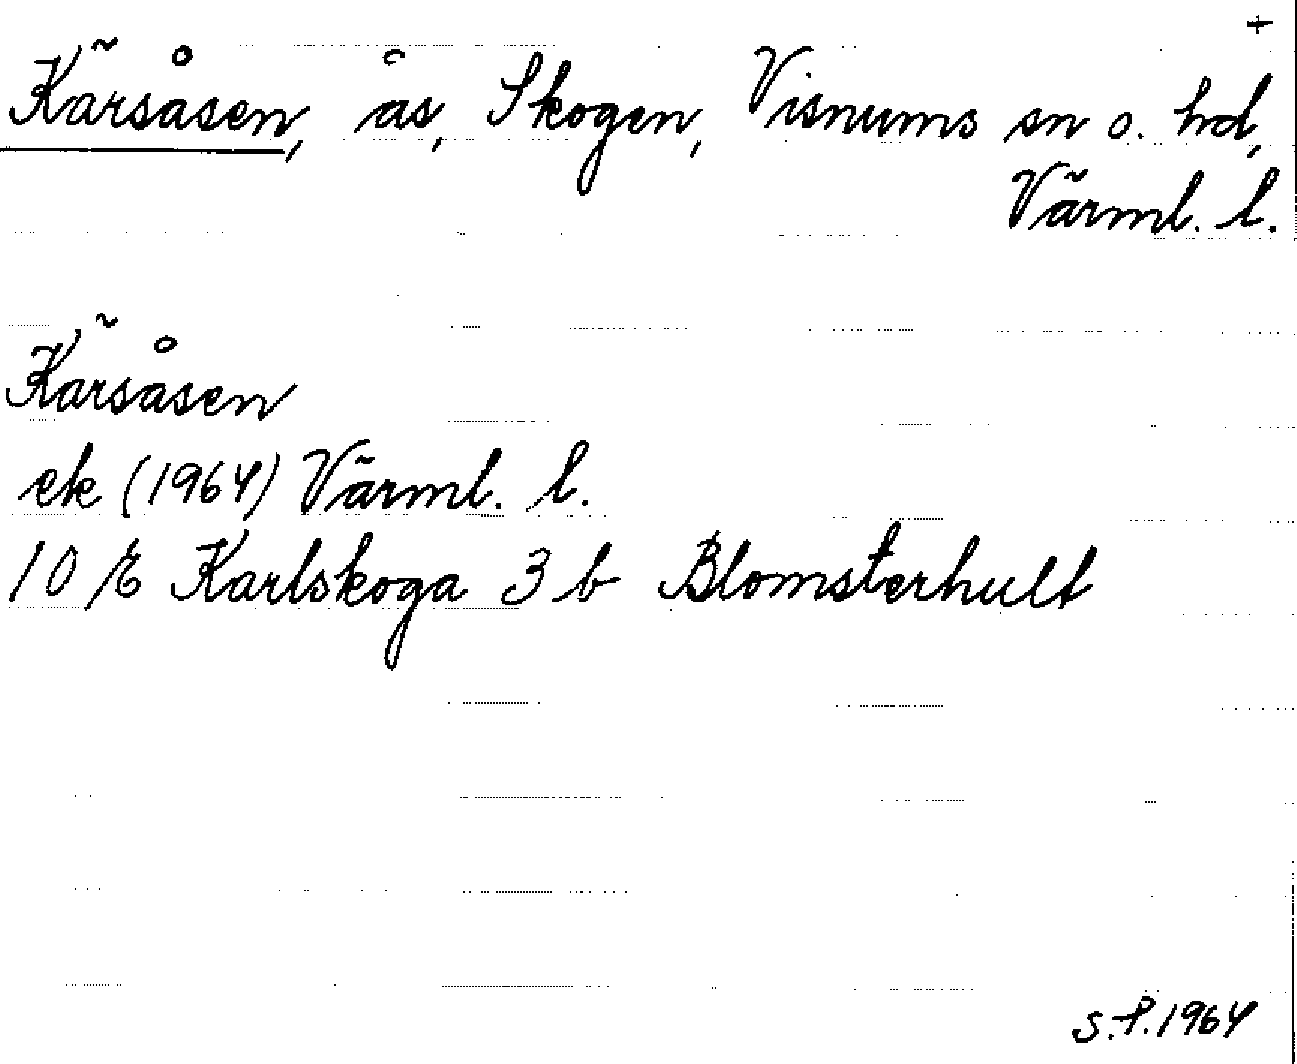 +
Kärsåsen, ås, Skogen, Visnums sn o. hd,
Värml. l.
Kärsåsen
ek (1964) Värml. l.
10 E Karlskoga 3 b Blomsterhult
S.F. 1964